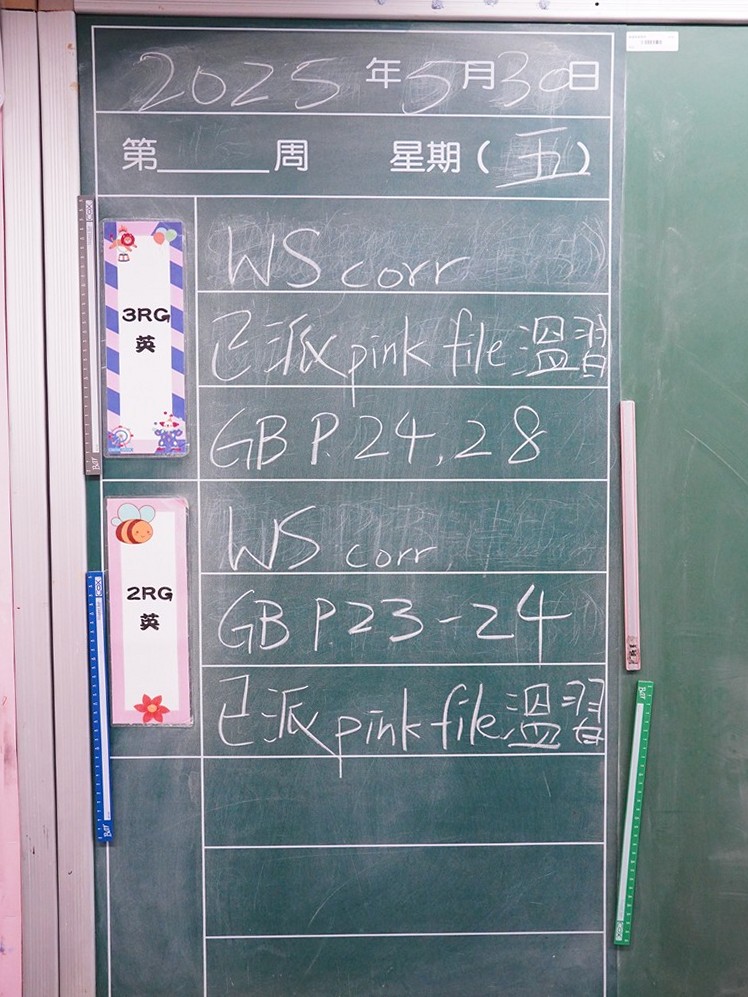 2025年5月30日
第____周 星期(五)
3RG
英
WS corr
已派pink file溫習
GB P.24,28
2RG
英
WS corr
GB P.23-24
已派pink file溫習